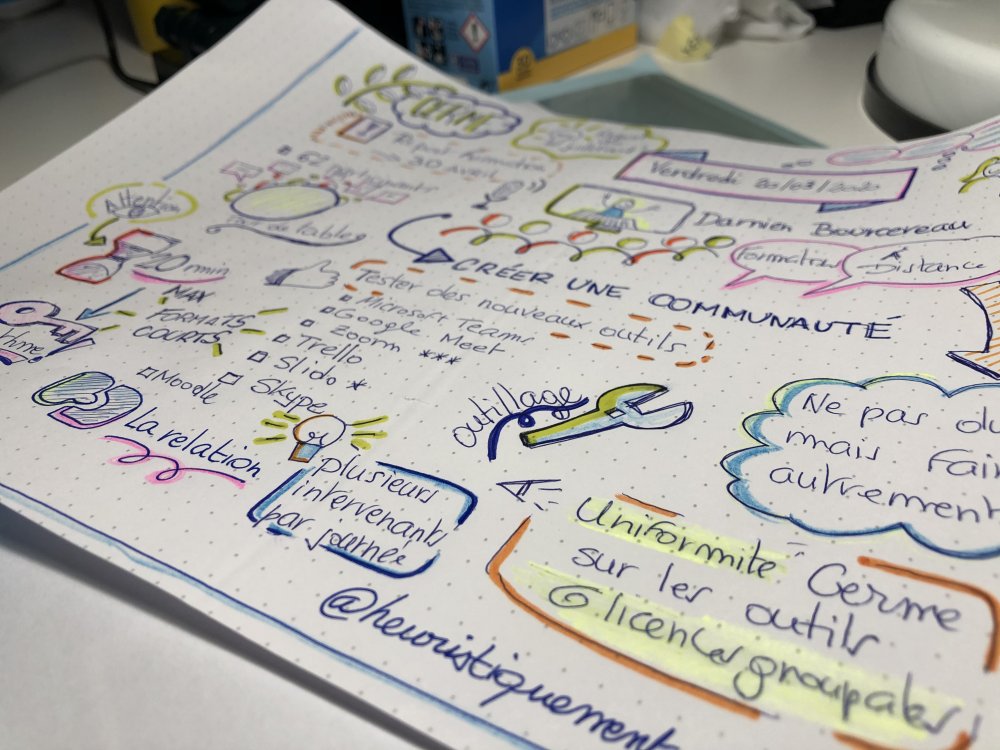 CERME
30 Avril
62 participants
Vendredi 20/03/2020
Attention
de table
Damien Bourcereau
20 min
MAX
FORMATS
COURTS
CRÉER UNE COMMUNAUTÉ
Formations
À
Distance
Tester des nouveaux outils
Microsoft Teams
Google Meet
Zoom ***
Trello
Slido *
Skype
Moodle
La relation
outillage
plusieurs
intervenants
par journée
Ne pas
mais
autrement
Uniformité Cerme
sur les outils
licences groupales
@heuristiquement